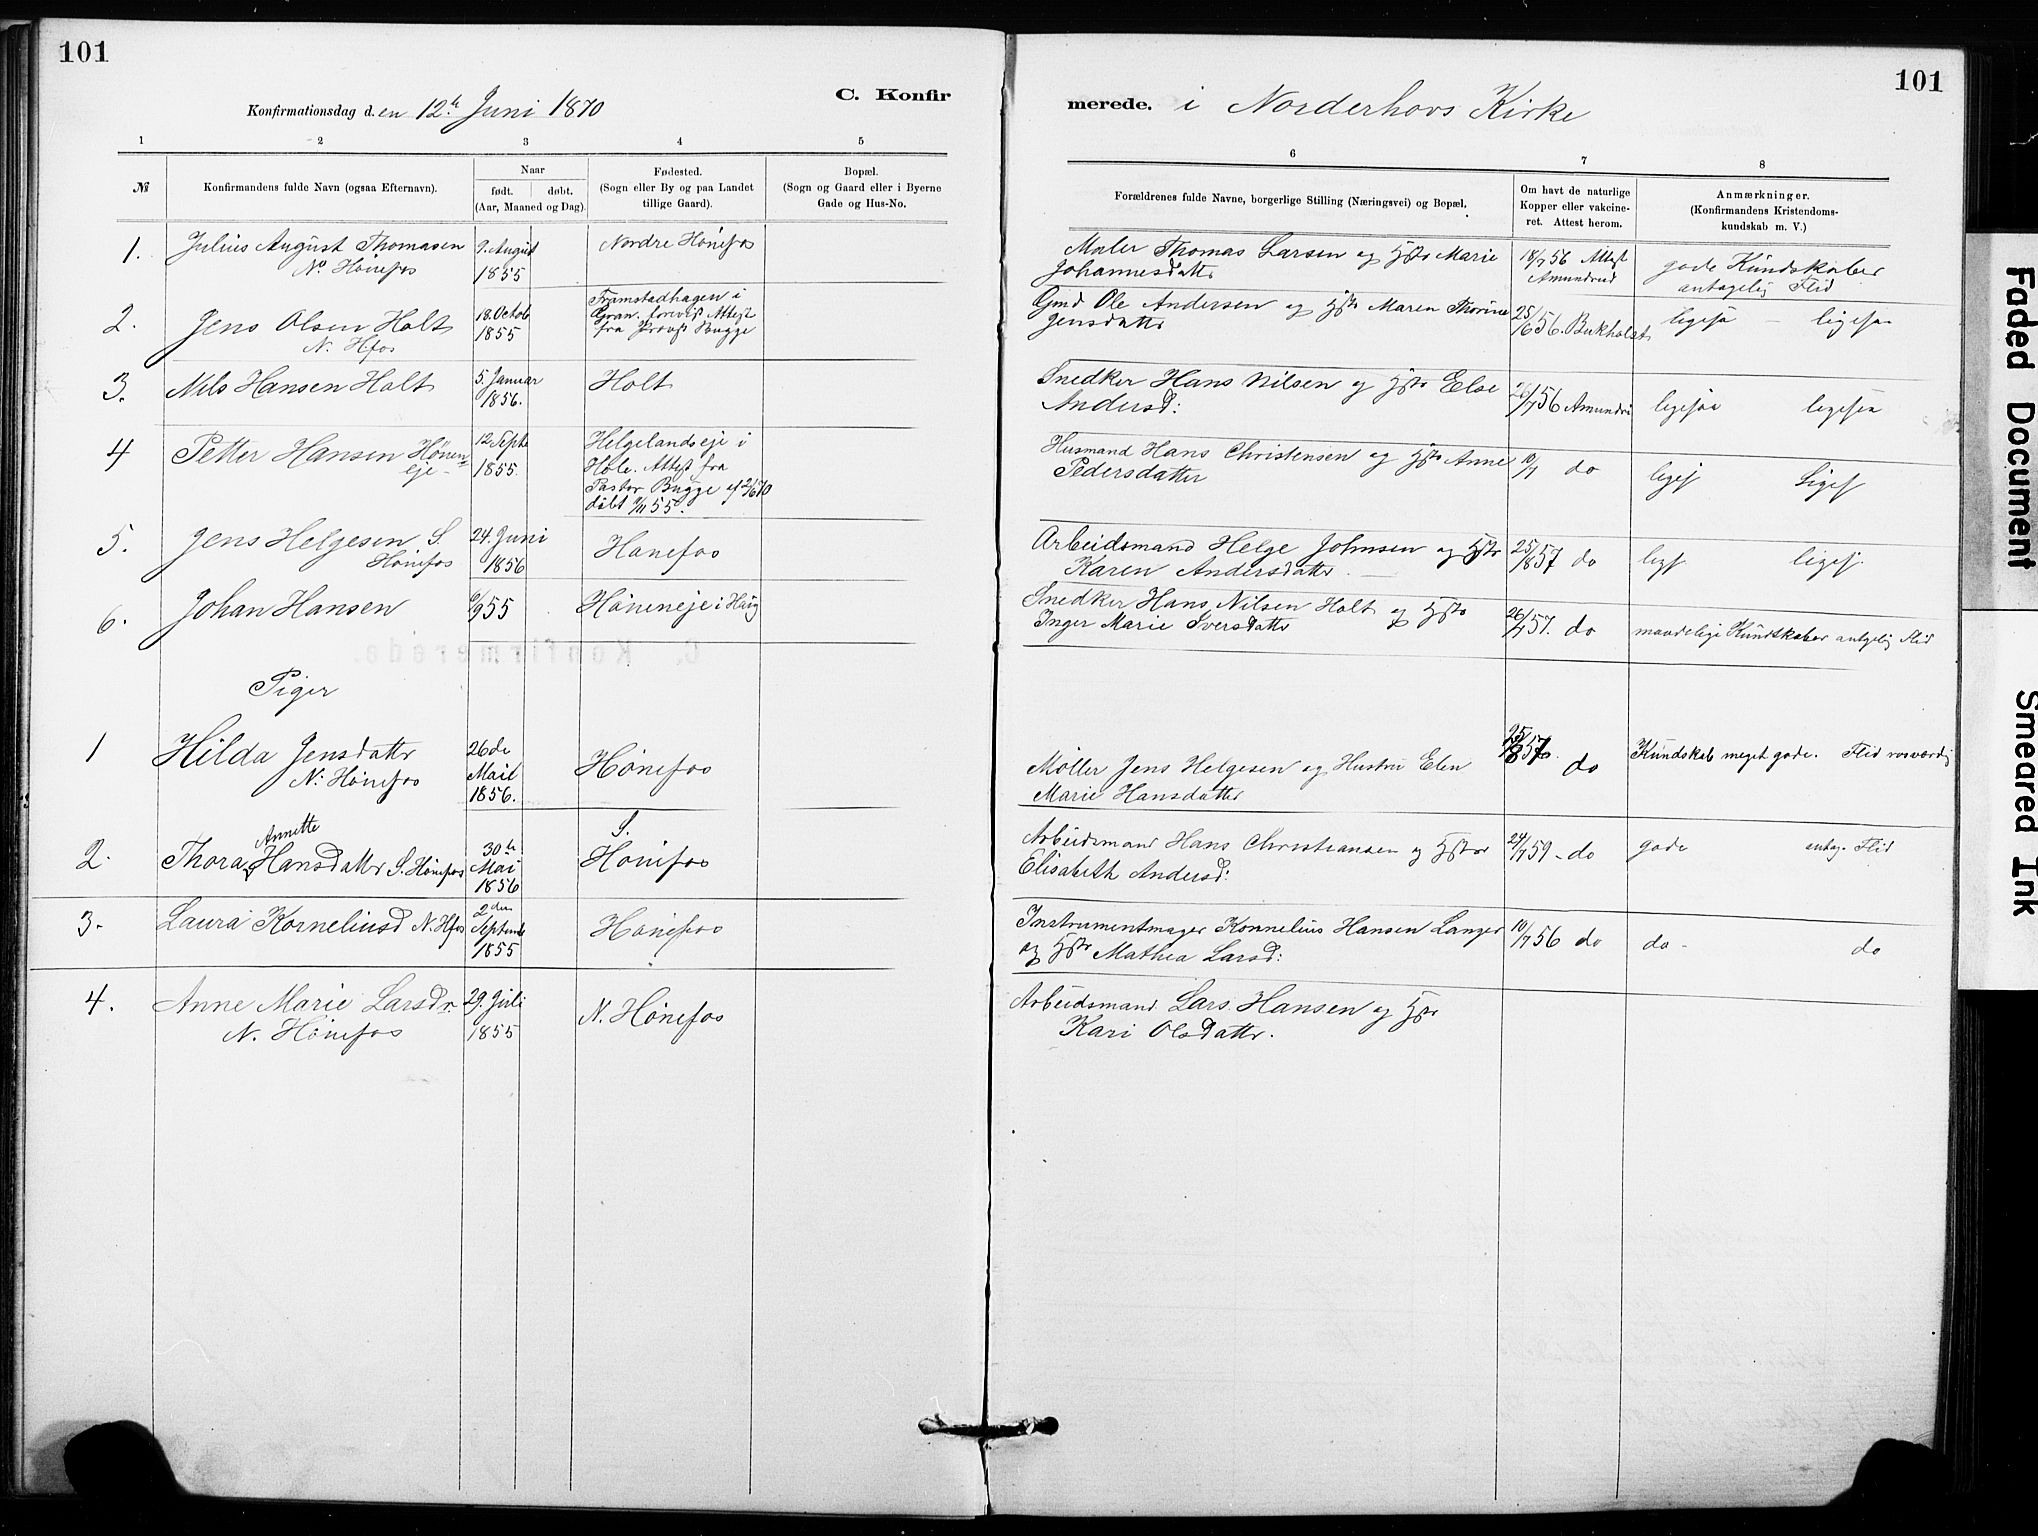 101
101
C. Konfir
merede. i Norderhovs Kirke
Konfirmationsdag d.en 12te Juni 1870
1 2 3 4 5
6 7 8
№
Konfirmandens fulde Navn (ogsaa Efternavn).
Naar
født. døbt.
(Aar, Maaned og Dag).
Fødested.
(Sogn eller By og paa Landet
tillige Gaard).
Bopæl.
(Sogn og Gaard eller i Byerne
Gade og Hus-No.
Forældrenes fulde Navne, borgerlige Stilling (Næringsvei) og Bopæl.
Om havt de naturlige
Kopper eller vakcine-
ret. Attest herom.
Anmærkninger.
(Konfirmandens Kristendoms-
kundskab m. V.)
1.
Julius August Thomasen
No Hønefos
9. August
1855
Nordre Hønefos
Maler Thomas Larsen og Hstr Marie
Johannesdattr
18/7 56 Attest
Amundrud
gode Kundskaber
antagelig Flid
2.
Jens Olsen Holt
N. Hfos
18. Octob
1855
Framstadhagen i
Gran. forevist Attest
fra Provst Bugge
Gmd Ole Andersen og Hstr Maren Thorine
Jensdattr
25/6 56. Bukholdt
ligesaa ligesaa
3.
Nils Hansen Holt
5. Januar
1856.
Holt
Snedker Hans Nilsen og Hstr Else
Andersd:
/7 56 Amundr
ligesaa ligesaa
4
Petter Hansen Hønen
eje
12 Septb
1855.
Helgelandseje i
Hole. Attest fra
Pastor Bugge af 2/6 70
døbt 1/11 55.
Husmand Hans Christensen og Hstr Anne
Pedersdatter
10/7 do
liges Liges
5.
Jens Helgesen S.
Hønefos
24. Juni
1856
Hønefos
Arbeidsmand Helge Johnsen og Hstr
Karen Andersdattr
25/8 57 do
ligs liges.
6.
Johan Hansen
6/9 55
Høneneje i Haug
Snedker Hans Nilsen Holt og Hstr
Inger Marie Iversdattr
26/7 57. do
maadelige Kundskaber antgelig Flid
C. Konfirmerede.
Piger
1
Hilda Jensdattr
N. Hønefos
26de
Mail
1856.
Hønefos
Møller Jens Helgesen og Hustru Elen
Marie Hansdatter
25/8 57 do
Kundskab meget gode. Flid rosværdig
2.
Annette
Thora Hansdattr S. Hønefos
30te
Mai
1856
S.
Hønefos
Arbeidsmand Hans Christiansen og Hstr
Elisabeth Andersd:
24/7 59 - do
gode antag. Flid
3.
Laura Korneliusd N. Hfos
2den
Septemb
1855
Hønefos
Instrumentmager Kornelius Hansen Langer
og Hstr Mathea Larsd:
10/7 56 do
do - do
4.
Anne Marie Larsdr.
N. Hønefos
29. Juli
1855
N. Hønefos
Arbeidsmand Lars Hansen og Hstr
Kari Olsdattr.
Faded Document
Smeared Ink